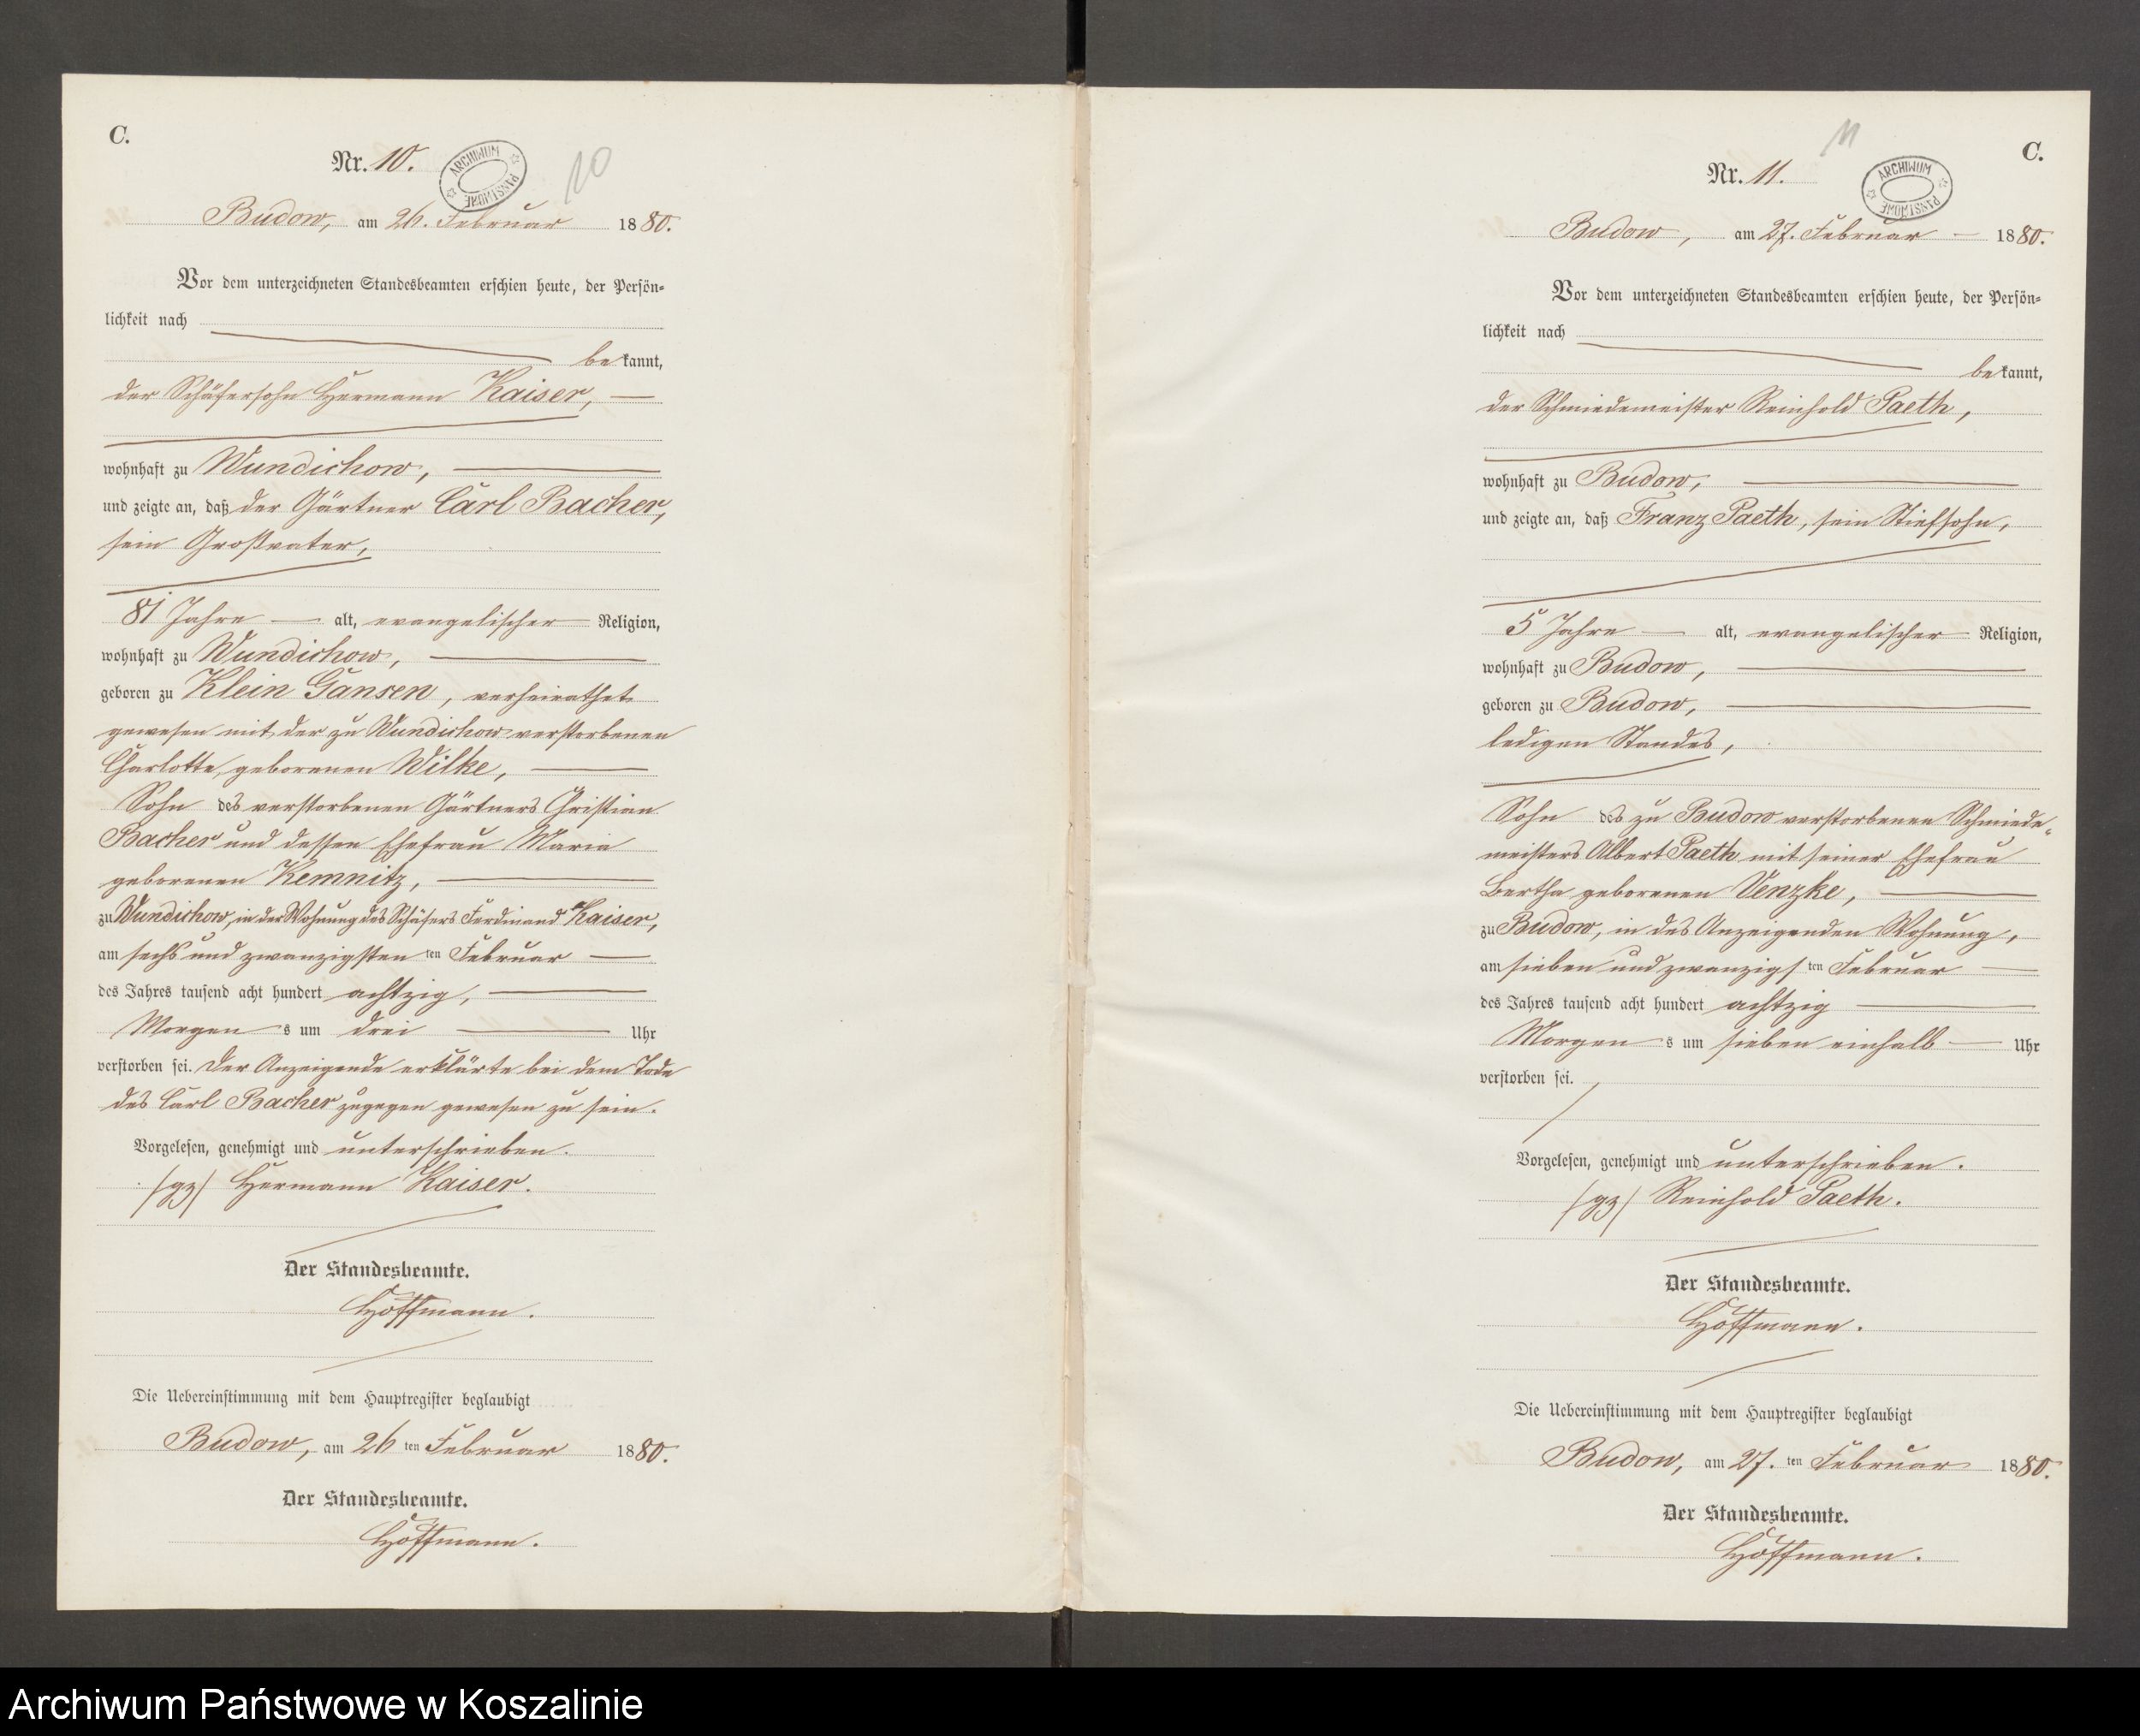 C.
Nr. 10.
ARCHIWUM PAŃSTWOWE
10
Budow, am 26. Februar 1880.
Vor dem unterzeichneten Standesbeamten erschien heute, der Persön-
lichkeit nach
bekannt,
der Schäfersohn Hermann Kaiser,
wohnhaft zu Wundichow,
und zeigte an, daß der Gärtner Carl Bacher,
sein Großvater,
81 Jahre alt, evangelischer Religion,
wohnhaft zu Wundichow,
geboren zu Klein Gansen, verheirathet
gewesen mit der zu Wundichow verstorbenen
Charlotte, geborenen Wilke,
Sohn des verstorbenen Gärtners Christian
Bacher und dessen Ehefrau Maria
geborenen Kemnitz,
zu Wundichow, in der Wohnung des Schäfers Ferdinand Kaiser,
am sechs und zwanzigsten ten Februar
des Jahres tausend acht hundert achtzig,
Morgens um drei Uhr
verstorben sei. Der Anzeigende erklärte bei dem Tode
des Carl Bacher zugegen gewesen zu sein.
Vorgelesen, genehmigt und unterschrieben.
/gz/ Hermann Kaiser.
Der Standesbeamte.
Hoffmann.
Die Uebereinstimmung mit dem Hauptregister beglaubigt
Budow, am 26 ten Februar 1880.
Der Standesbeamte.
Hoffmann.
11
C.
Nr. 11.
ARCHIWUM PAŃSTWOWE
Budow, am 27. Februar 1880.
Vor dem unterzeichneten Standesbeamten erschien heute, der Persön-
lichkeit nach
bekannt,
der Schmiedemeister Reinhold Paeth,
wohnhaft zu Budow,
und zeigte an, daß Franz Paeth, sein Stiefsohn,
5 Jahre alt, evangelischer Religion,
wohnhaft zu Budow,
geboren zu Budow,
ledigen Standes,
Sohn des zu Budow verstorbenen Schmiede-
meisters Albert Paeth mit seiner Ehefrau
Bertha geborenen Venzke,
zu Budow, in des Anzeigenden Wohnung,
am sieben und zwanzigs ten Februar
des Jahres tausend acht hundert achtzig
Morgens um sieben einhalb Uhr
verstorben sei.
Vorgelesen, genehmigt und unterschrieben.
/gz/ Reinhold Paeth.
Der Standesbeamte.
Hoffmann.
Die Uebereinstimmung mit dem Hauptregister beglaubigt
Budow, am 27. ten Februar 1880.
Der Standesbeamte.
Hoffmann.
Archiwum Państwowe w Koszalinie